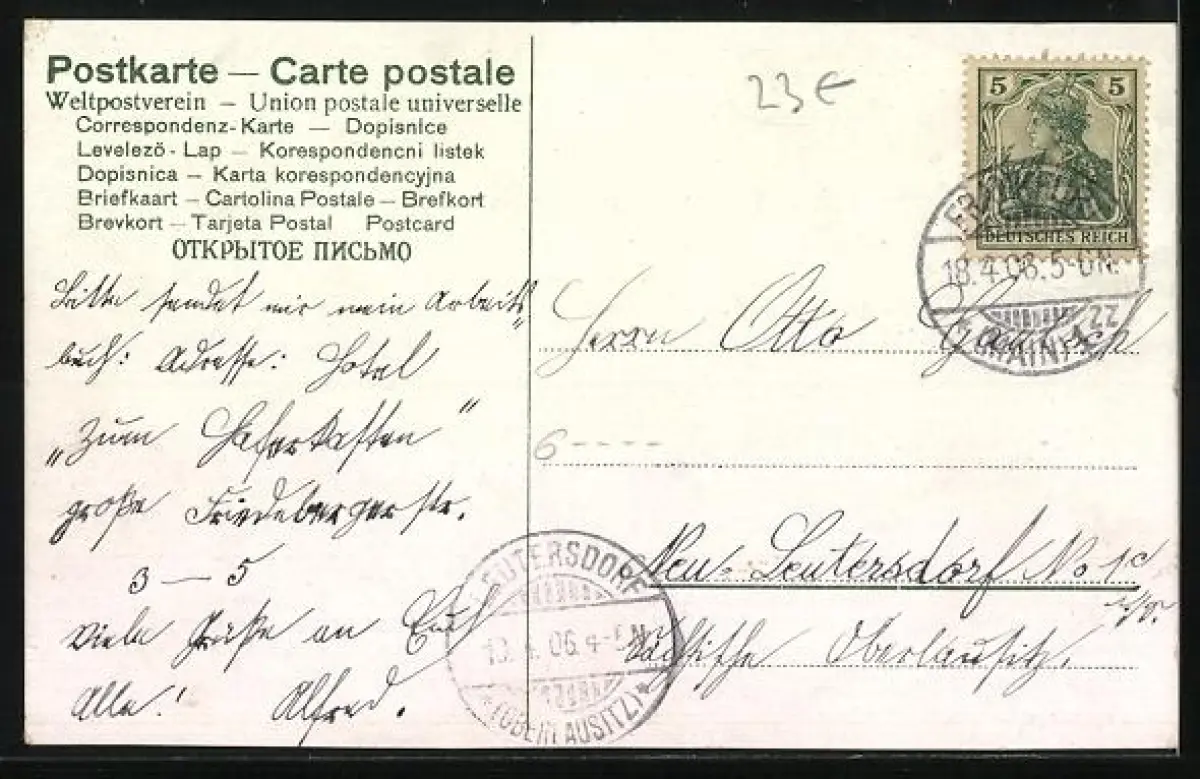 Postkarte — Carte postale
Weltpostverein — Union postale universelle
Correspondenz-Karte — Dopisnice
Levelező-Lap — Korespondencni listek
Dopisnica — Karta korespondencyjna
Briefkaart — Cartolina Postale — Brefkort
Brevkort — Tarjeta Postal Postcard
ОТКРЫТОЕ ПИСЬМО
Bitte sendet mir mein Arbeits
buch: Adresse: Hotel
„Zum Haferkasten"
große Friedebergerstr.
3 — 5
Viele Grüße an Euch
Alle! Alfred.
23 €
5 5
DEUTSCHES REICH
FRANKFURT
18.4.06. 5-6N.
(MAIN) 1
Herrn Otto
6 - - - -
Neu-Leutersdorf No 1c
Sächsische Oberlausitz.
LEUTERSDORF
4.06. 4-5N
* (OBERLAUSITZ) *